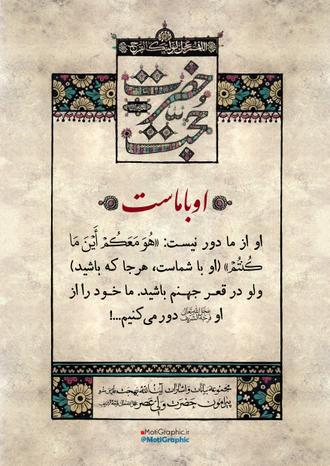 اللهم عجل لولیک الفرج
حضرت حجت
او با ماست
او از ما دور نیست: «هُوَ مَعَکُمْ أَیْنَ مَا
کُنتُمْ» (او با شماست، هرجا که باشید)
ولو در قعر جهنم باشید. ما خود را از
او دور می‌کنیم...!
مجموعه بیانات و اشارات آیت الله بهجت
پیرامون حضرت ولی عصر
MotiGraphic.ir
@MotiGraphic